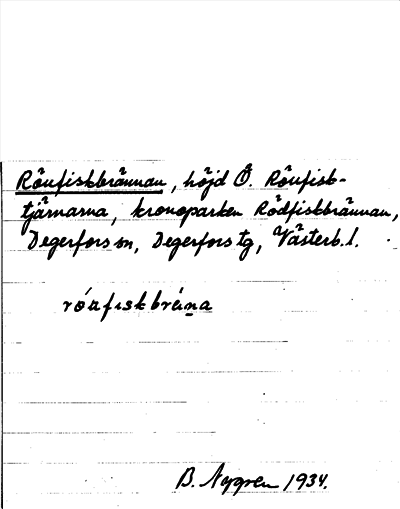 Röufiskbrännan, höjd Ö. Röufisk-
tjärnarna, kronoparken Rödfiskbrännan,
Degerfors sn, Degerfors tg, Västerb. l.
röufiskbräna
B. Nygren 1934.